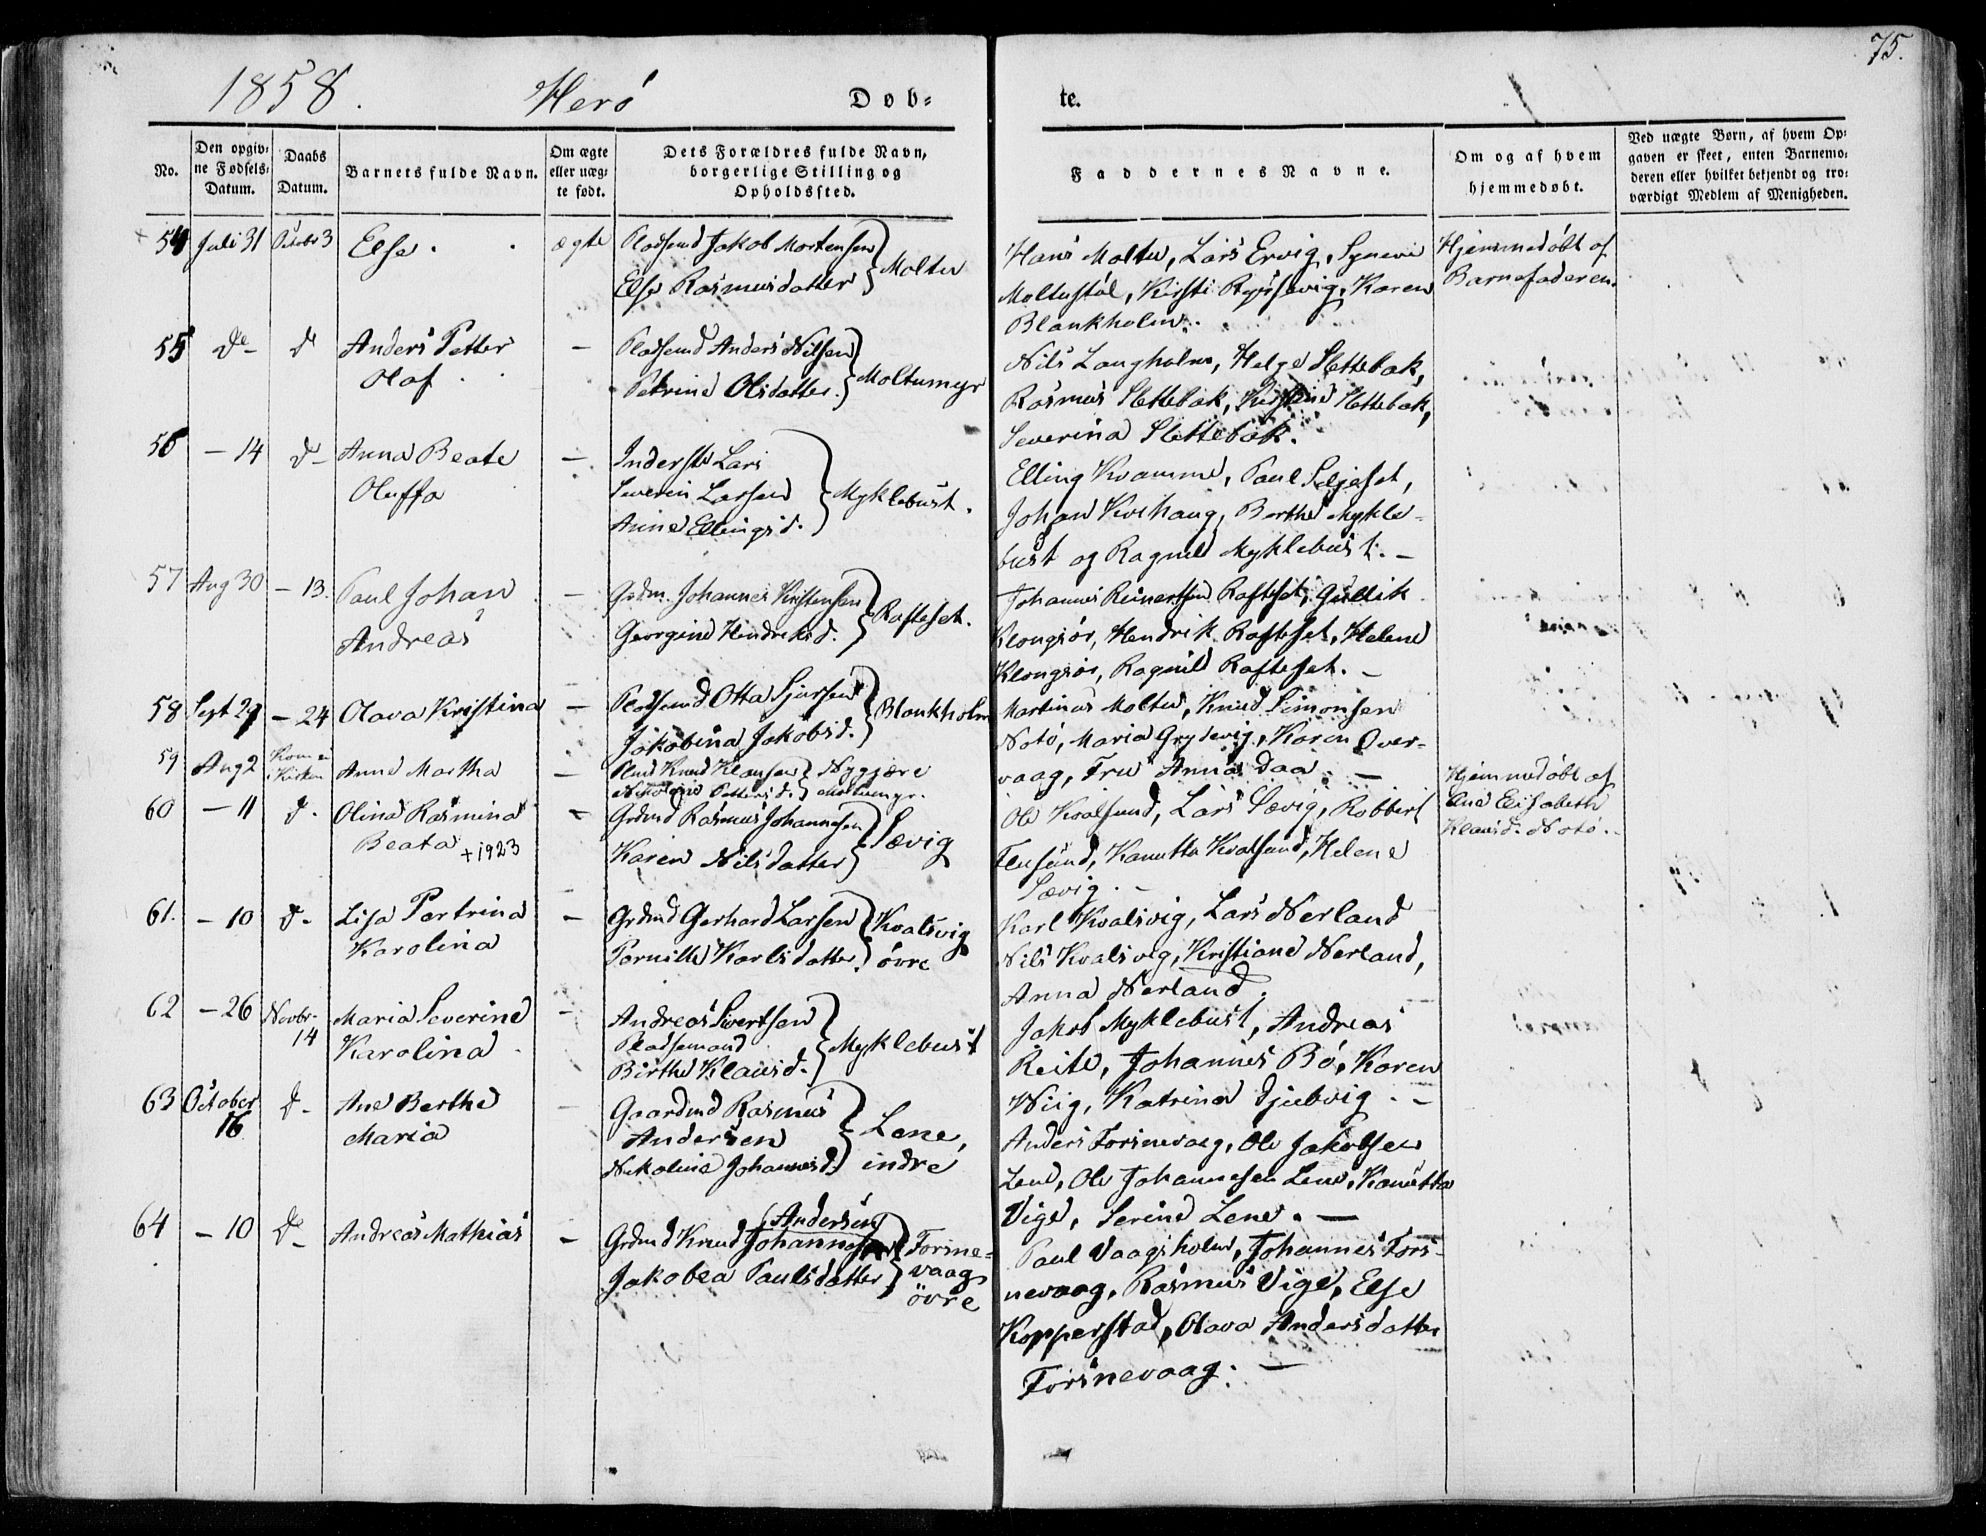 75.
1858. Herö Døb-
te.
No.
Den opgiv-
ne Fødsels-
Datum.
Daabs
Datum.
Barnets fulde Navn.
Om ægte
eller uæg-
te født.
Dets Forældres fulde Navn,
borgerlige Stilling og
Opholdssted.
Faddernes Navne.
Om og af hvem
hjemmedøbt.
Ved uægte Børn, af hvem Op-
gaven er skeet, enten Barnemo-
deren eller hvilket bekjendt og tro-
værdigt Medlem af Menigheden.
54 Juli 31 Octobr 3 Else ægte Pladsmd Jakob Mortensen
Else Rasmusdatter Moltu
Hans Moltu, Lars Ervig, Syneve
Moltustöl, Kirsti Røsevig, Karen
Blankholm.
Hjemmedöbt af
Barnefaderen.
55 Do - Do Anders Petter
Olaf
- Pladsmd Anders Nilsen
Petrine Olsdatter. Moltumyr
Nils Langholm, Helge Slettebak,
Rasmus Slettebak, Kirstine Slettebak,
Severina Slettebak.
56 - 14 Do - Anna Beate
Oluffa
- Inderste Lars
Severin Larsen
Anne Ellingsd. Myklebust.
Elling Kvamme, Paul Seljeset,
Johan Kvihaug, Berthe Mykle-
bust og Ragnild Myklebust. -
57 Aug 30 - 13. Paul Johan
Andreas
- Grdm. Johannes Kristensen
Georgine Hendriksd. Rafteset.
Johannes Reinertsen Rafteset, Gullik
Klongsör, Hendrik Rafteset, Helene
Klongsör, Ragnild Rafteset. -
58 Sept 29 - 24 Olava Kristina - Pladsmd Otta Sjursen
Jakobina Jakobsd. Blankholm
Martinus Moltu, Knud Simonsen
Notö, Maria Grydevig, Karen Over-
vaag, Fru Anna Daa. -
59 Aug 2 Kom i
Kirken Anne Martha - Plmd Knud Klausen Nygjære
Nikoline Pettersd. Moltumyr.
Hjemmedöbt af
Ane Elisabeth
Klausd. Notö.
60 - 11 Do. Olina Rasmina
Beata +1923
- Grdmd Rasmus Johannesen
Karen Nilsdatter Sævig
Ole Kvalsund, Lars Sævig, Robbert
Flusund, Kanutta Kvalsund, Helene
Sævig. -
61. - 10 Do - Lisa Pertrina
Karolina
- Grdmd Gerhard Larsen
Pernille Karlsdatter. Kvalsvig
övre
Karl Kvalsvig, Lars Nerland
Nils Kvalsvig, Kristiane Nerland,
Anna Nerland.
62 - 26 Novbr-
14 Maria Severine
Karolina
- Andreas Sivertsen
Pladsemand
Birthe Klausd. Myklebust
Jakob Myklebust, Andreas
Reite, Johannes Bö, Karen
Wiig, Katrina Djubvig. -
63 October
16 Do - Ane Berthe
Maria
- Gaardmd Rasmus
Andersen
Nikoline Johannesd. Lene,
indre
Anders Forsnevaag, Ole Jakobsen
Lene, Ole Johannesen Lene, Kanutta
Vige, Serine Lene. -
64 - 10 Do - Andreas Mathias - (Andersen)
Grdmd Knud Johannesen
Jakobea Paulsdatter Forsne-
vaag
övre
Paul Vaagsholm, Johannes Fors-
nevaag, Rasmus Vige, Else
Kopperstad, Olava Andersdatter
Forsnevaag. -